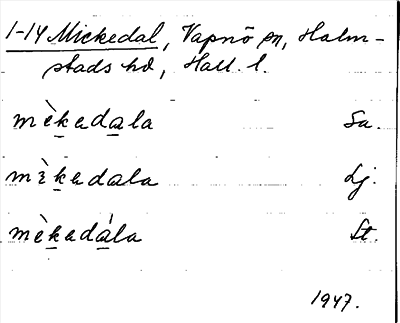 1-14 Mickedal, Vapnö sn, Halm-
stads hd, Hall. l.
mèkedala Sa.
mèkedala Lj.
mèkedála St.
1947.